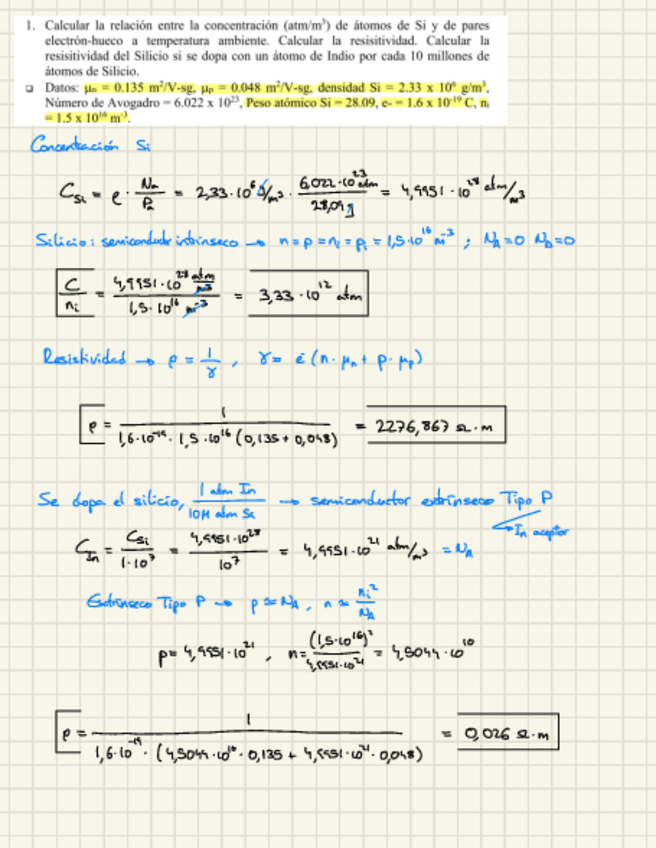 1. Calcular la relación entre la concentración (atm/m³) de átomos de Si y de pares
electrón-hueco a temperatura ambiente. Calcular la resisitividad. Calcular la
resisitividad del Silicio si se dopa con un átomo de Indio por cada 10 millones de
átomos de Silicio.
Datos: μₙ = 0.135 m²/V-sg, μₚ = 0.048 m²/V-sg, densidad Si = 2.33 x 10⁶ g/m³,
Número de Avogadro = 6.022 x 10²³, Peso atómico Si = 28.09, e- = 1.6 x 10⁻¹⁹ C, nᵢ
= 1.5 x 10¹⁶ m⁻³.
Concentración Si
C_Si = ρ · Na/Pa = 2,33·10⁶ g/m³ · 6,022·10²³ atm / 28,09 g = 4,9951·10²⁸ atm/m³
Silicio: semiconductor intrínseco → n=p=nᵢ=pᵢ=1,5·10¹⁶ m⁻³ ; N_A=0 N_D=0
C/nᵢ = 4,9951·10²⁸ atm/m³ / 1,5·10¹⁶ m⁻³ = 3,33·10¹² atm
Resistividad → ρ = 1/γ , γ = e⁻(n·μₙ + p·μₚ)
ρ = 1 / 1,6·10⁻¹⁹ · 1,5·10¹⁶ (0,135 + 0,048) = 2276,867 Ω·m
Se dopa el silicio, 1 atm In / 10M atm Si → semiconductor extrínseco Tipo P
In aceptor
C_In = C_Si / 1·10⁷ = 4,9951·10²⁸ / 10⁷ = 4,9951·10²¹ atm/m³ = N_A
Extrínseco Tipo P → p ≈ N_A , n ≈ nᵢ²/N_A
p = 4,9951·10²¹ , n = (1,5·10¹⁶)² / 4,9951·10²¹ = 4,5044·10¹⁰
ρ = 1 / 1,6·10⁻¹⁹ · (4,5044·10¹⁰ · 0,135 + 4,9951·10²¹ · 0,048) = 0,026 Ω·m